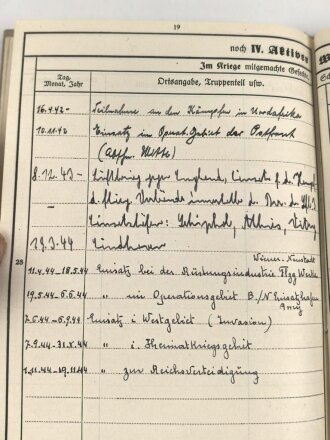 19
noch IV. Aktiver
W
Im Kriege mitgemachte Gefechte
Sch
Tag, Monat, Jahr
Ortsangabe, Truppenteil usw.
16.4.42- Teilnahme an den Kämpfen in Nordafrika
10.11.42 Einsatz im Operat. Gebiet der Ostfront
(Abschn. Mitte)
8.12.43- Luftkrieg gegen England, Einsatz f. d.
d. flieg. Verbände innerhalb d.
- Einsatzhäfen: Schiphol, Athies, Vitry
19.3.44 Lindhoven
28
Wiener-Neustadt
11.4.44-18.5.44 Einsatz bei der Rüstungsindustrie Flzg Werke
19.5.44-6.6.44 " im Operationsgebiet B./N Einsatzhafen
7.6.44-6.9.44 Einsatz i Westgebiet (Invasion)
7.9.44-31.X.44 " i. Heimatkriegsgebiet
1.11.44-19.11.44 " zur Reichsverteidigung